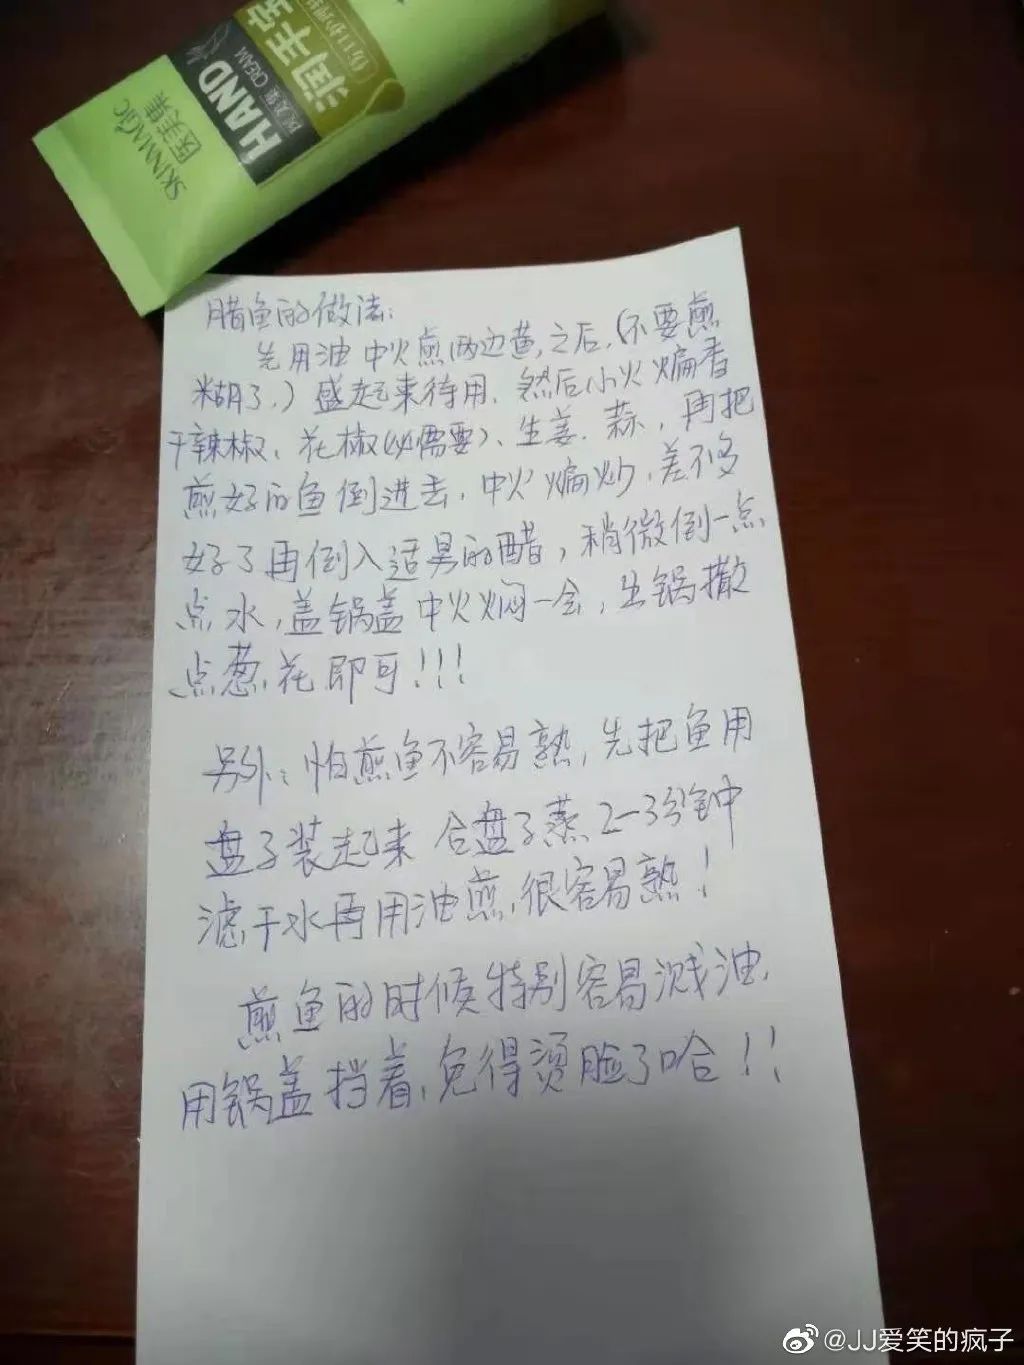 SKINMAGIC
医美雅
HAND
CREAM
润手
腊鱼的做法:
先用油中火煎两边黄,之后,(不要煎
糊了.)盛起来待用.然后小火煸香
干辣椒、花椒(必需要)、生姜.蒜,再把
煎好的鱼倒进去,中火煸炒,差不多
好了再倒入适男的醋,稍微倒一点
点水,盖锅盖中火焖一会,出锅撒
点葱花即可!!!
另外:怕煎鱼不容易熟,先把鱼用
盘子装起来合盘子蒸2-3分钟
滤干水再用油煎,很容易熟!
煎鱼的时候特别容易溅油,
用锅盖挡着,免得烫脸了哈!!
@JJ爱笑的疯子